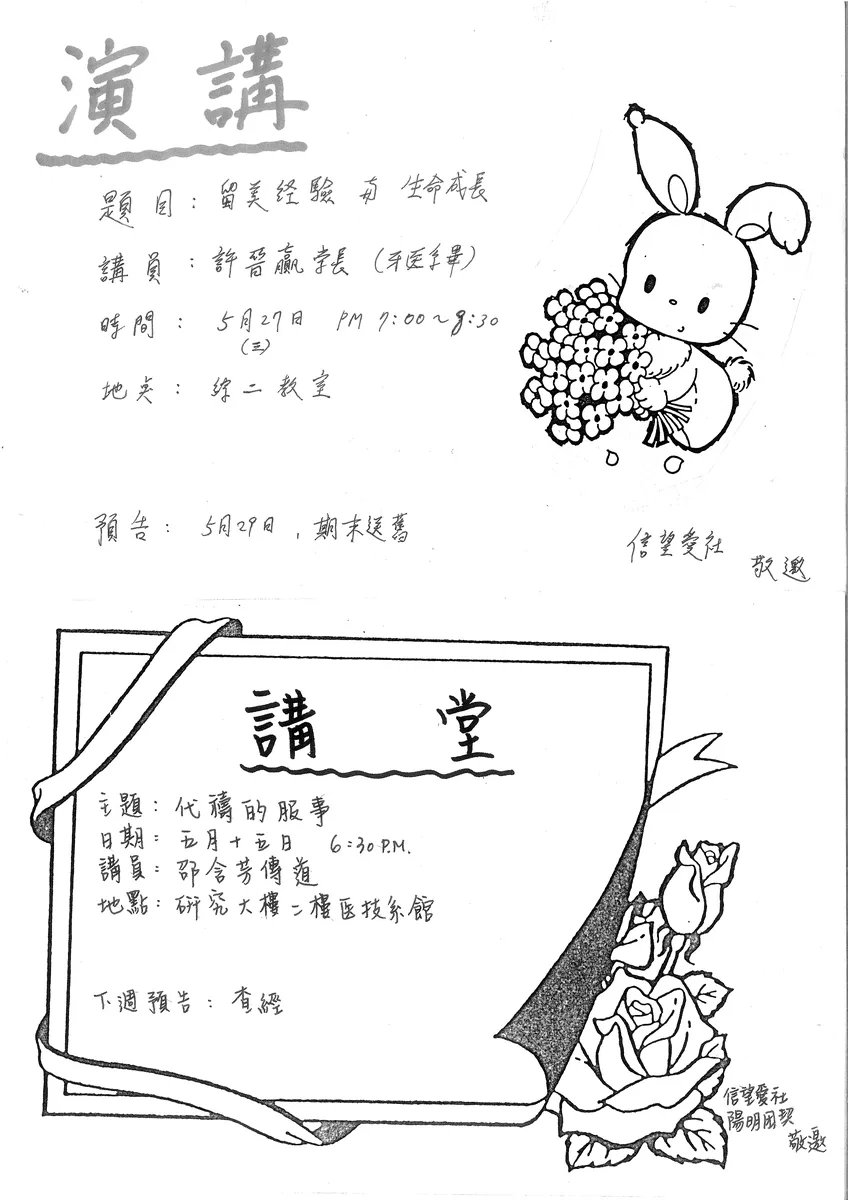 演講
題目：留美经驗与生命成長
講員：許晉贏学長（牙医系畢）
時間：5月27日 PM 7:00～8:30
（三）
地点：综二教室
預告：5月29日，期末送舊
信望愛社
敬邀
講堂
主題：代禱的服事
日期：五月十五日 6:30P.M.
講員：邵含芳傳道
地點：研究大樓二樓医技系館
下週預告：查經
信望愛社
陽明团契
敬邀